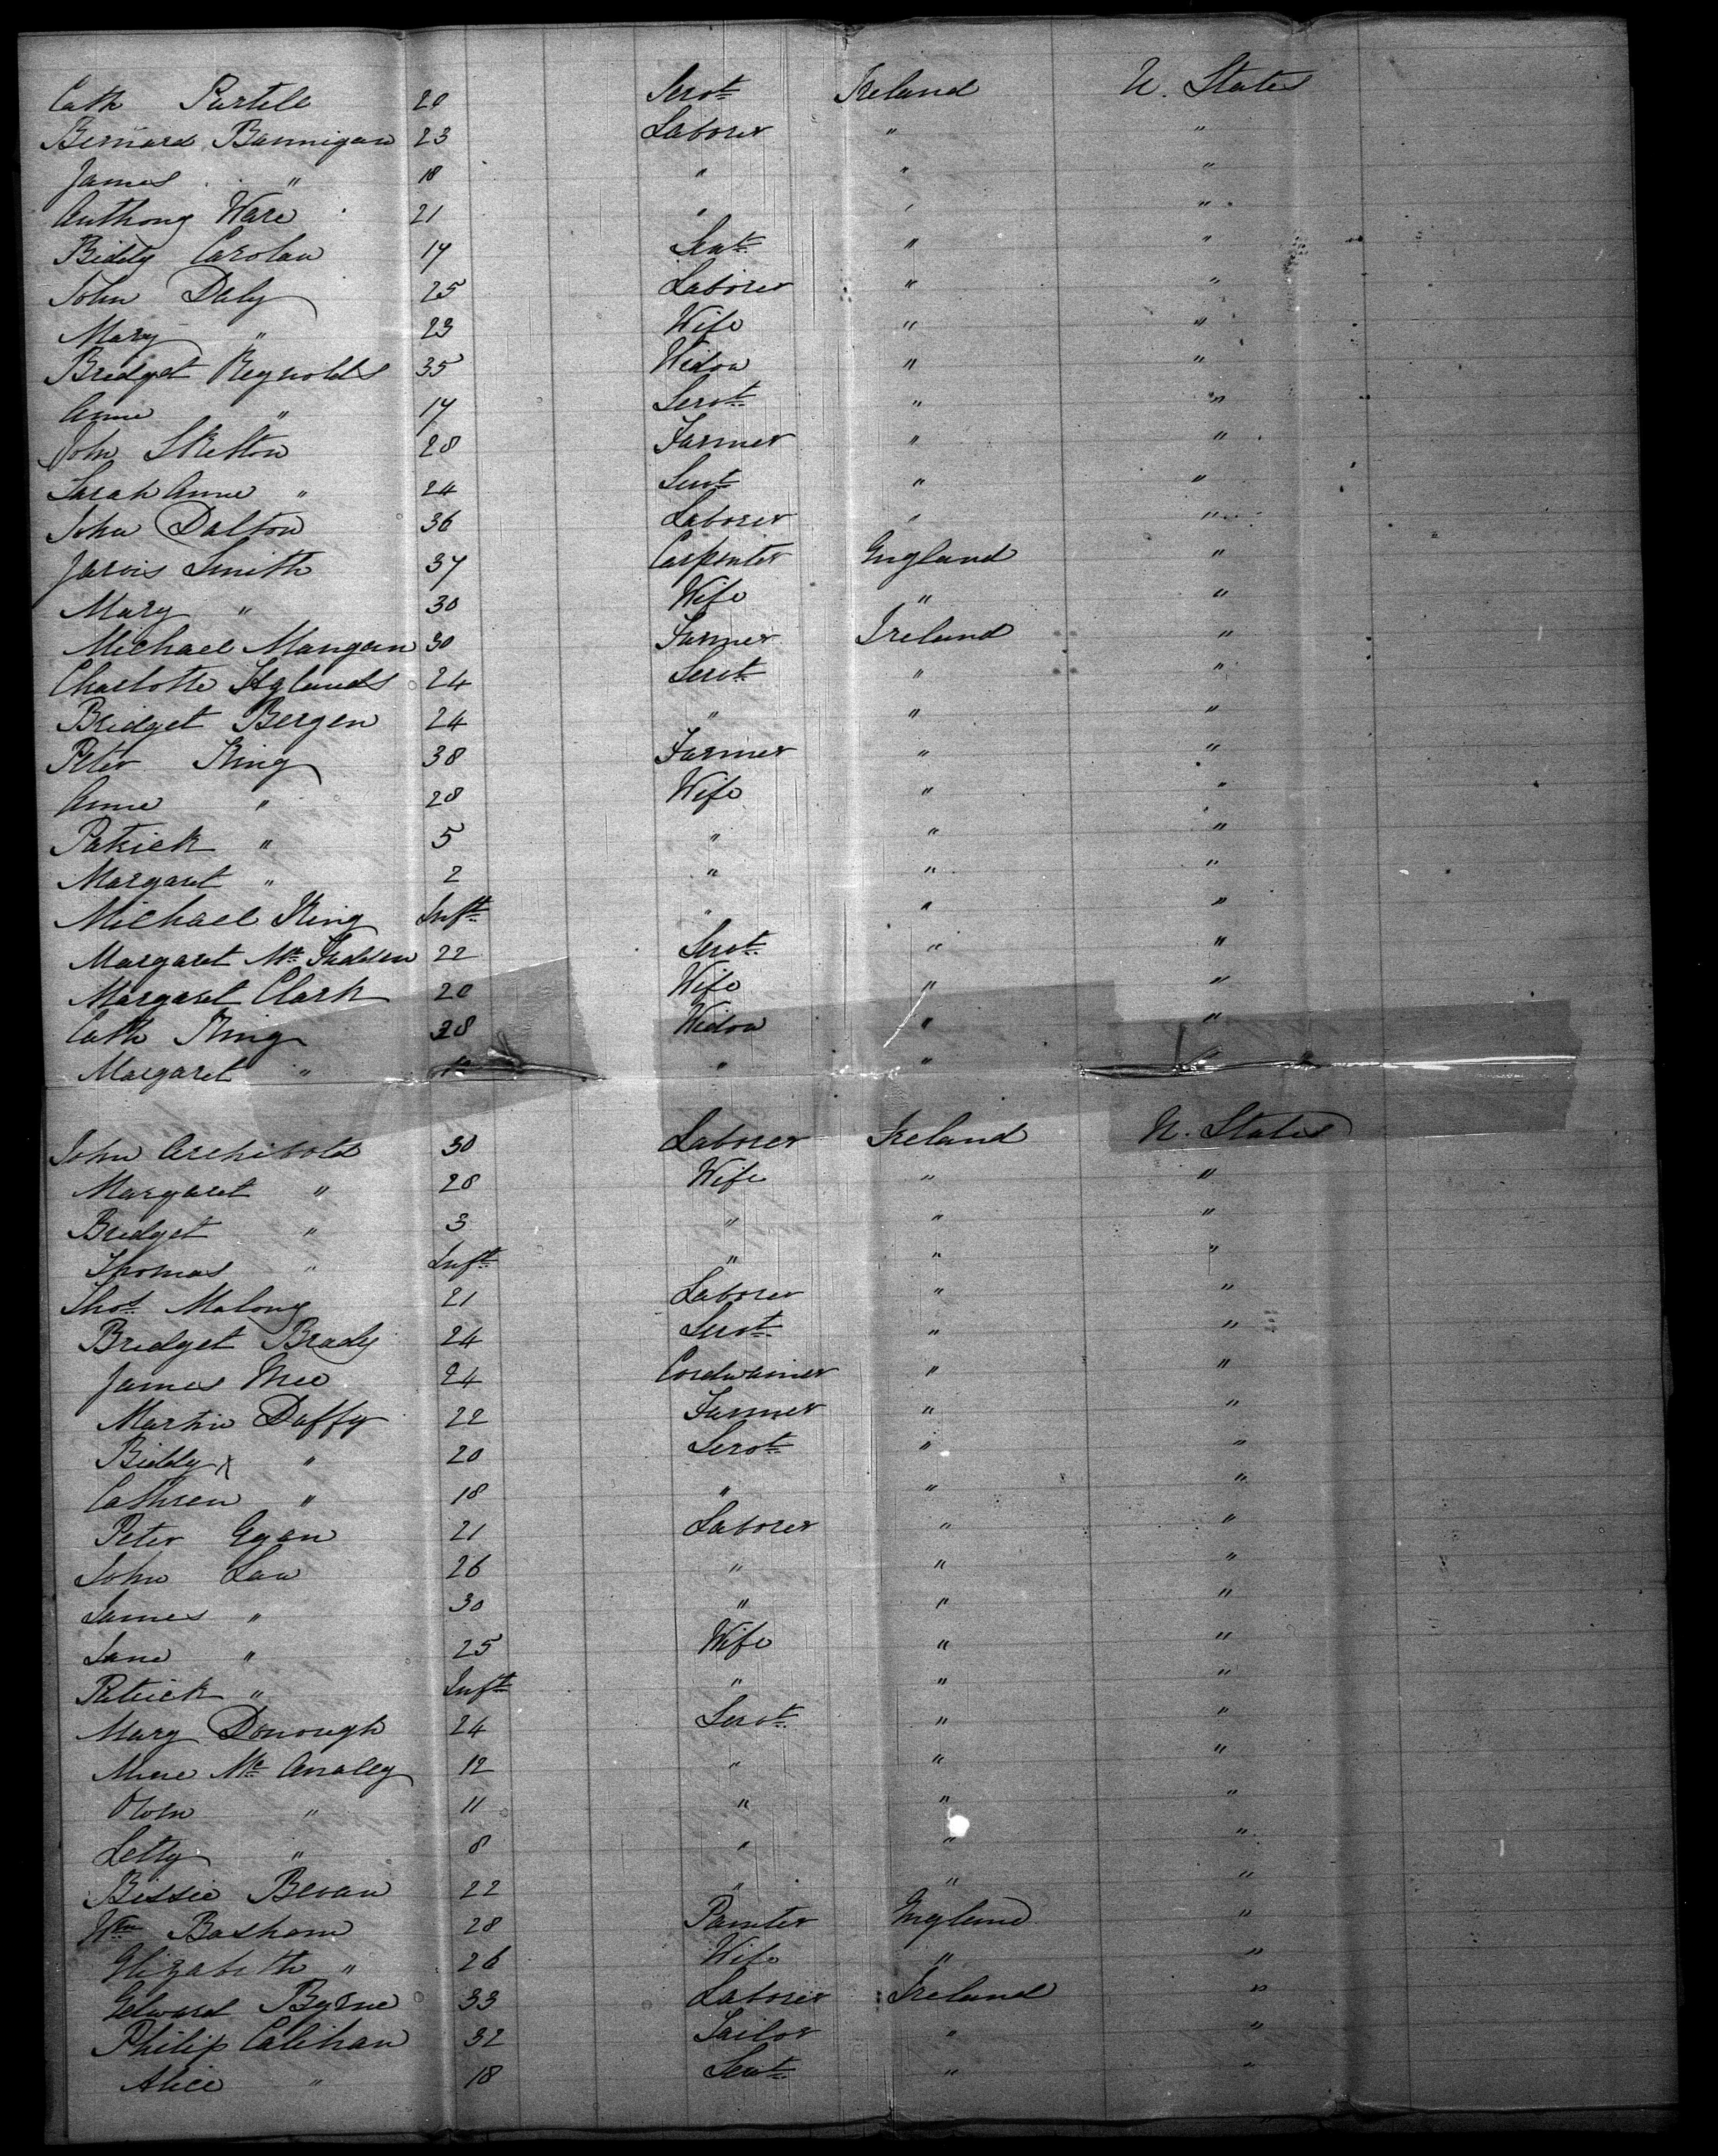 Cath Purtell 20 Servt Ireland U. States
Bernard Bannigan 23 Laborer " "
James " 18 " " "
Anthony Ware 21 " " "
Biddy Carolan 17 Servt " "
John Daly 25 Laborer " "
Mary " 23 Wife " "
Bridget Reynolds 35 Widow " "
Anne " 17 Servt " "
John Skelton 28 Farmer " "
Sarah Anne " 24 Servt " "
John Dalton 36 Laborer " "
Jarvis Smith 37 Carpenter England "
Mary " 30 Wife " "
Michael Mangan 30 Farmer Ireland "
Charlotte Hylands 24 Servt " "
Bridget Bergen 24 " " "
Peter King 38 Farmer " "
Anne " 28 Wife " "
Patrick " 5 " " "
Margaret " 2 " " "
Michael King Inft " " "
Margaret Mc Fadden 22 Servt " "
Margaret Clark 20 Wife " "
Cath King 28 Widow " "
Margaret " " " "
John Archibold 30 Laborer Ireland U. States
Margaret " 28 Wife " "
Bridget " 3 " " "
Thomas " Inft " " "
Thos Malony 21 Laborer " "
Bridget Brady 24 Servt " "
James Mee 24 Cordwainer " "
Martin Duffy 22 Farmer " "
Biddy " 20 Servt " "
Cathren " 18 " " "
Peter Egan 21 Laborer " "
John Law 26 " " "
James " 30 " " "
Jane " 25 Wife " "
Patrick " Inft " " "
Mary Donough 24 Servt " "
Mc Analey 12 " " "
Owen " 11 " " "
Letty " 8 " " "
Bessie Bevan 22 " " "
Wm Basham 28 Painter England "
Elizabeth " 26 Wife " "
Edward Byrne 33 Laborer Ireland "
Philip Calihan 32 Tailor " "
Alice " 18 Servt " "